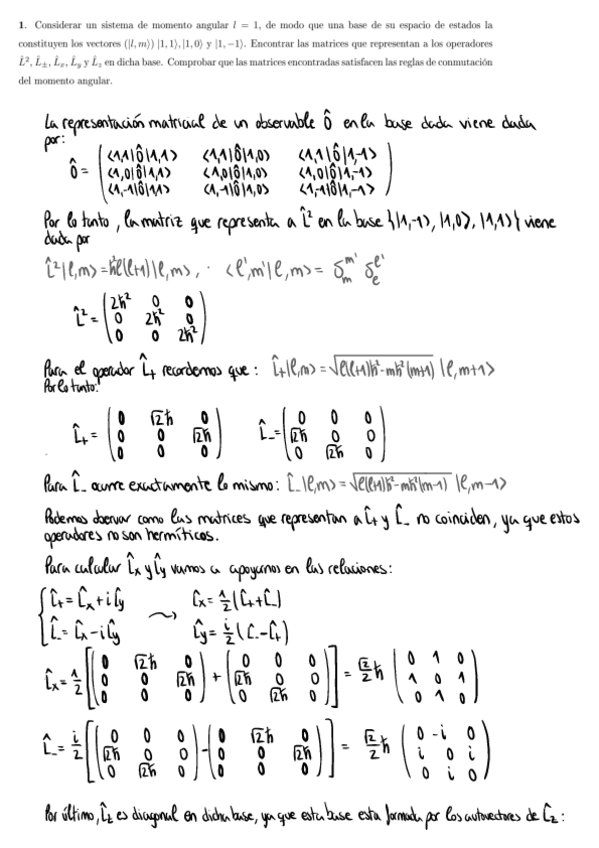 1. Considerar un sistema de momento angular l = 1, de modo que una base de su espacio de estados la
constituyen los vectores (|l, m⟩) |1, 1⟩, |1, 0⟩ y |1, −1⟩. Encontrar las matrices que representan a los operadores
L̂², L̂±, L̂x, L̂y y L̂z en dicha base. Comprobar que las matrices encontradas satisfacen las reglas de conmutación
del momento angular.
La representación matricial de un observable Ô en la base dada viene dada
por:
Ô = ( ⟨1,1|Ô|1,1⟩ ⟨1,1|Ô|1,0⟩ ⟨1,1|Ô|1,-1⟩
⟨1,0|Ô|1,1⟩ ⟨1,0|Ô|1,0⟩ ⟨1,0|Ô|1,-1⟩
⟨1,-1|Ô|1,1⟩ ⟨1,-1|Ô|1,0⟩ ⟨1,-1|Ô|1,-1⟩ )
Por lo tanto, la matriz que representa a L̂² en la base {|1,-1⟩, |1,0⟩, |1,1⟩} viene
dada por
L̂²|l,m⟩ = ħ²l(l+1)|l,m⟩, · ⟨l',m'|l,m⟩ = δ_m^m' δ_l^l'
L̂² = ( 2ħ² 0 0
0 2ħ² 0
0 0 2ħ² )
Para el operador L̂+ recordemos que: L̂+|l,m⟩ = √(l(l+1)ħ²-mħ²(m+1)) |l,m+1⟩
Por lo tanto:
L̂+ = ( 0 √2ħ 0 L̂- = ( 0 0 0
0 0 √2ħ √2ħ 0 0
0 0 0 ) 0 √2ħ 0 )
Para L̂- ocurre exactamente lo mismo: L̂-|l,m⟩ = √(l(l+1)ħ²-mħ²(m-1)) |l,m-1⟩
Podemos observar como las matrices que representan a L̂+ y L̂- no coinciden, ya que estos
operadores no son hermíticos.
Para calcular L̂x y L̂y vamos a apoyarnos en las relaciones:
{ L̂+ = L̂x + iL̂y → L̂x = 1/2 (L̂+ + L̂-)
L̂- = L̂x - iL̂y L̂y = i/2 (L̂- - L̂+)
L̂x = 1/2 [ ( 0 √2ħ 0 + ( 0 0 0 = √2/2 ħ ( 0 1 0
0 0 √2ħ √2ħ 0 0 1 0 1
0 0 0 ) 0 √2ħ 0 ) ] 0 1 0 )
L̂- = i/2 [ ( 0 0 0 - ( 0 √2ħ 0 = √2/2 ħ ( 0 -i 0
√2ħ 0 0 0 0 √2ħ i 0 i
0 √2ħ 0 ) 0 0 0 ) ] 0 i 0 )
Por último, L̂z es diagonal en dicha base, ya que esta base esta formada por los autovectores de L̂z: